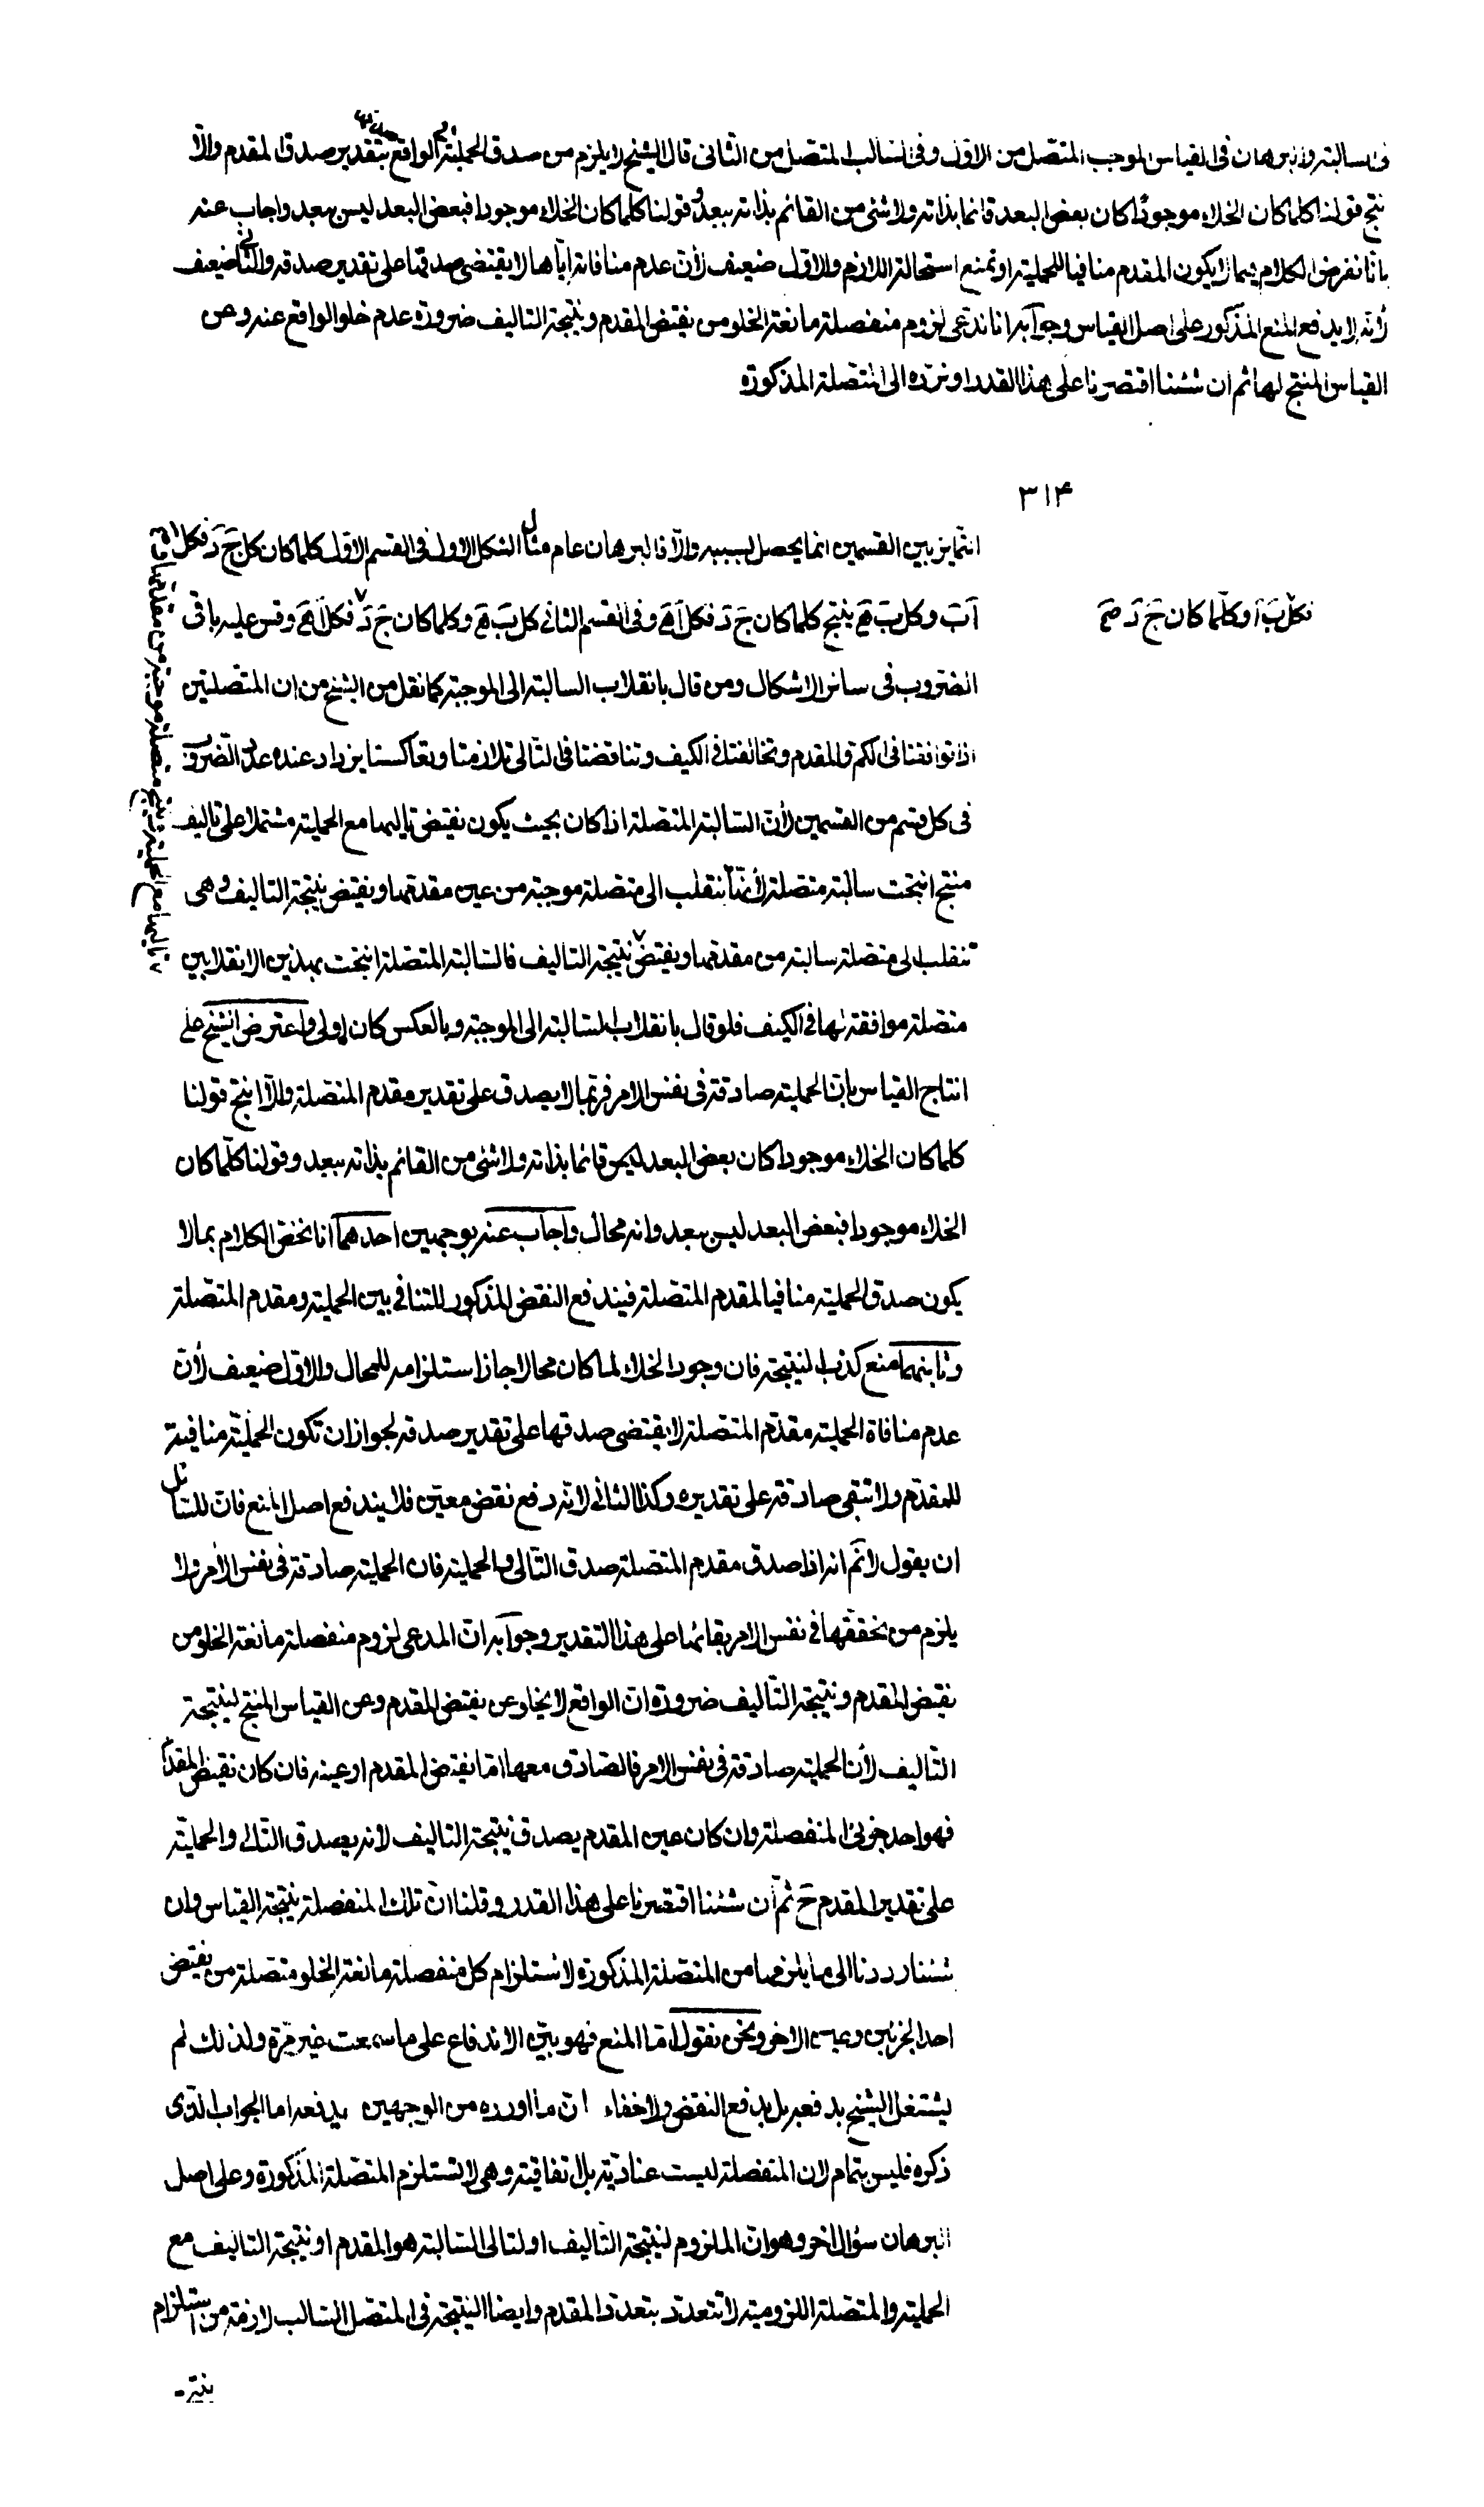 في السالبة والبرهان في القياس الموجب المتصل من الاول وفي السالب المتصل من الثاني قال الشيخ لا يلزم من صدق الحملية في الواقع صدقها بتقدير صدق المقدم والا
نتج قولنا كلما كان الخلاء موجودا كان بعض البعد قائما بذاته ولا شئ من القائم بذاته ببعد وقولنا كلما كان الخلاء موجودا فبعض البعد ليس ببعد واجاب عنه
بانا نفرض الكلام فيما لا يكون المقدم منافيا للحملية او نمنع استحالة اللازم والاول ضعيف لأن عدم منافاته اياها لا يقتضى صدقها على تقدير صدقه والثاني ضعيف
لأنه لا يدفع المنع المذكور على اصل القياس وجوابه انا ندعى لزوم منفصلة مانعة الخلو من نقيض المقدم ونتيجة التاليف ضرورة عدم خلو الواقع عنه وعن
القياس المنتج لها ثم ان شئنا اقتصرنا على هذا القدر او نرده الى المتصلة المذكورة
٣١۴
التمايز بين القسمين انما يحصل بسببه والا فالبرهان عام مثال الشكل الاول في القسم الاول كلما كان كل ج د فكل
فكل ب آ وكلما كان ج د
آ ب وكل ب ه ينتج كلما كان ج د فكل آ ه وفي القسم الثاني كل ب ه وكلما كان ج د فكل آ ه وقس عليه باقى
الضروب في سائر الاشكال ومن قال بانقلاب السالبة الى الموجبة كما نقل من الشيخ من ان المتصلتين
اذا توافقتا في الكم والمقدم وتخالفتا في الكيف وتناقضتا في التالى تلازمتا وتعاكستا يزداد عنده عدد الضروب
في كل قسم من القسمين لأن السالبة المتصلة اذا كان بحيث يكون نقيض تاليها مع الحملية مشتملا على تاليف
منتج انتجت سالبة متصلة لأنها تنقلب الى متصلة موجبة من عين مقدمها ونقيض نتيجة التاليف وهى
تنقلب الى متصلة سالبة من مقدمها ونقيض نتيجة التاليف فالسالبة المتصلة انتجت بهذين الانقلابين
متصلة موافقة لها في الكيف فلو قال بانقلاب السالبة الى الموجبة وبالعكس كان اولى واعترض الشيخ على
انتاج القياس بان الحملية صادقة في نفس الامر فربما لا يصدق على تقدير مقدم المتصلة والا انتج قولنا
كلما كان الخلاء موجودا كان بعض البعد قائما بذاته ولا شئ من القائم بذاته ببعد وقولنا كلما كان
الخلاء موجودا فبعض البعد ليس ببعد وانه محال واجاب عنه بوجهين احدهما انا نخص الكلام بما لا
يكون صدق الحملية منافيا لمقدم المتصلة فيندفع النقض المذكور للتنافي بين الحملية ومقدم المتصلة
وثانيهما منع كذب النتيجة فان وجود الخلاء لما كان محالا جاز استلزامه للمحال والاول ضعيف لأن
عدم منافاة الحملية مقدم المتصلة لا يقتضى صدقها على تقدير صدقه لجواز ان تكون الحملية منافية
للمقدم ولا تبقى صادقة على تقديره وكذا الثاني لأنه دفع نقض معين فلا يندفع اصل المنع فان للسائل
ان يقول لا نم انه اذا صدق مقدم المتصلة صدق التالى والحملية فان الحملية صادقة في نفس الأمر ولا
يلزم من تحققها في نفس الامر بقائها على هذا التقدير وجوابه ان المدعى لزوم منفصلة مانعة الخلو من
نقيض المقدم ونتيجة التاليف ضرورة ان الواقع لا يخلو عن نقيض المقدم وعن القياس المنتج لنتيجة
التاليف لأن الحملية صادقة في نفس الامر فالصادق معها اما نقيض المقدم او عينه فان كان نقيض المقدم
فهو احد جزئى المنفصلة وان كان عين المقدم يصدق نتيجة التاليف لأنه يصدق التالى والحملية
على تقدير المقدم ح ثم ان شئنا اقتصرنا على هذا القدر وقلنا ان تلك المنفصلة نتيجة القياس وان
شئنا رددنا الى ما يلزمها من المتصلة المذكورة لاستلزام كل منفصلة مانعة الخلو متصلة من نقيض
احد الجزئين وعين الاخر ونحن نقول اما المنع فهو بين الاندفاع على ما سمعت غير مرة ولذلك لم
يشتغل الشيخ بدفعه بل بدفع النقض ولا خفاء ان ما اورده من الوجهين يدفعه اما الجواب الذى
ذكره فليس بتمام لان المنفصلة ليست عنادية بل اتفاقية وهى لا تستلزم المتصلة المذكورة وعلى اصل
البرهان سؤال اخر وهو ان الملزوم لنتيجة التاليف او لتالى السالبة هو المقدم او نتيجة التاليف مع
الحملية والمتصلة اللزومية لا تتعدد بتعدد المقدم وايضا النتيجة في المتصل السالب لازمة من استلزام